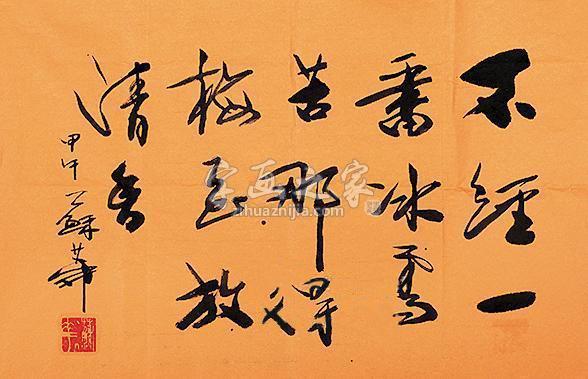 不經一
番冰雪
苦那得
梅花放
清香
甲午蘇華
字画之家
zihuazhijia.com